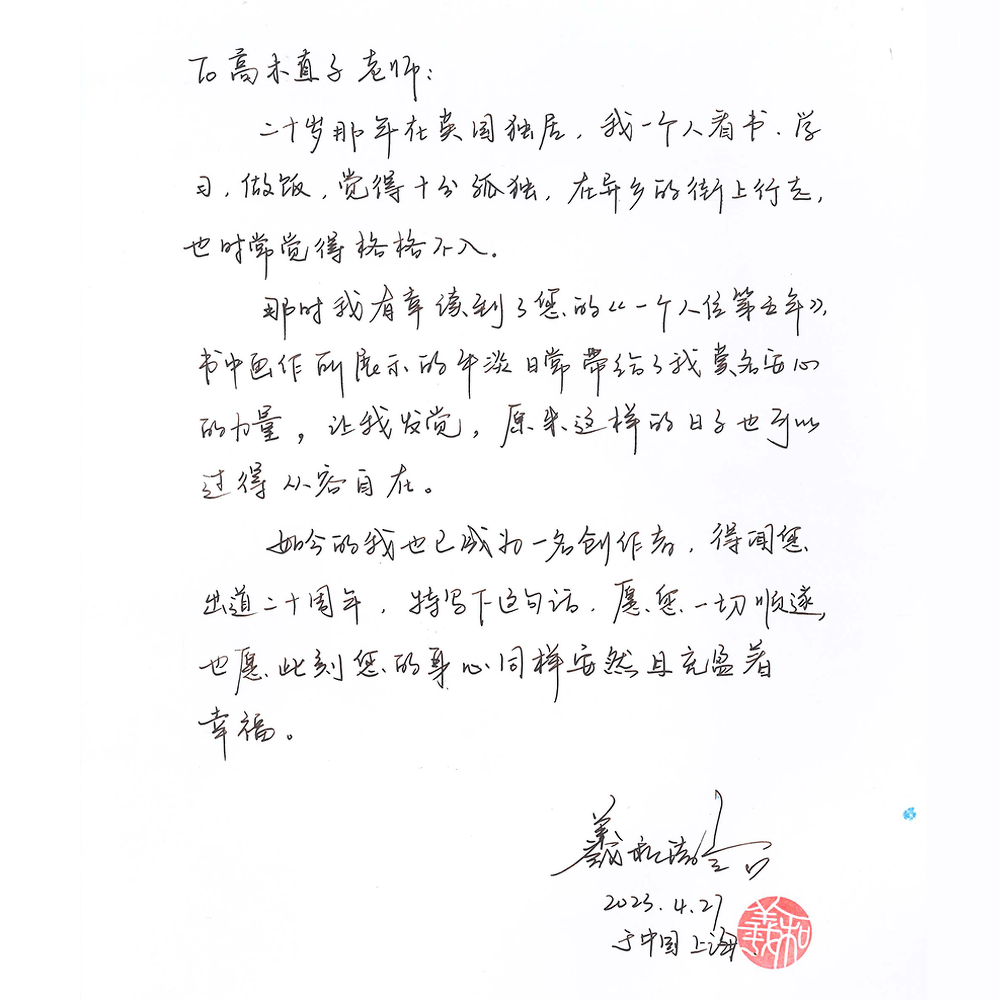 To 高木直子老师：
二十岁那年在英国独居，我一个人看书、学
习，做饭，觉得十分孤独，在异乡的街上行走，
也时常觉得格格不入。
那时我有幸读到了您的《一个人住第五年》，
书中画作所展示的平淡日常带给了我莫名安心
的力量，让我发觉，原来这样的日子也可以
过得从容自在。
如今的我也已成为一名创作者，得闻您
出道二十周年，特写下这句话，愿您一切顺遂，
也愿此刻您的身心同样安然且充盈着
幸福。
2023.4.27
于中国上海
義和